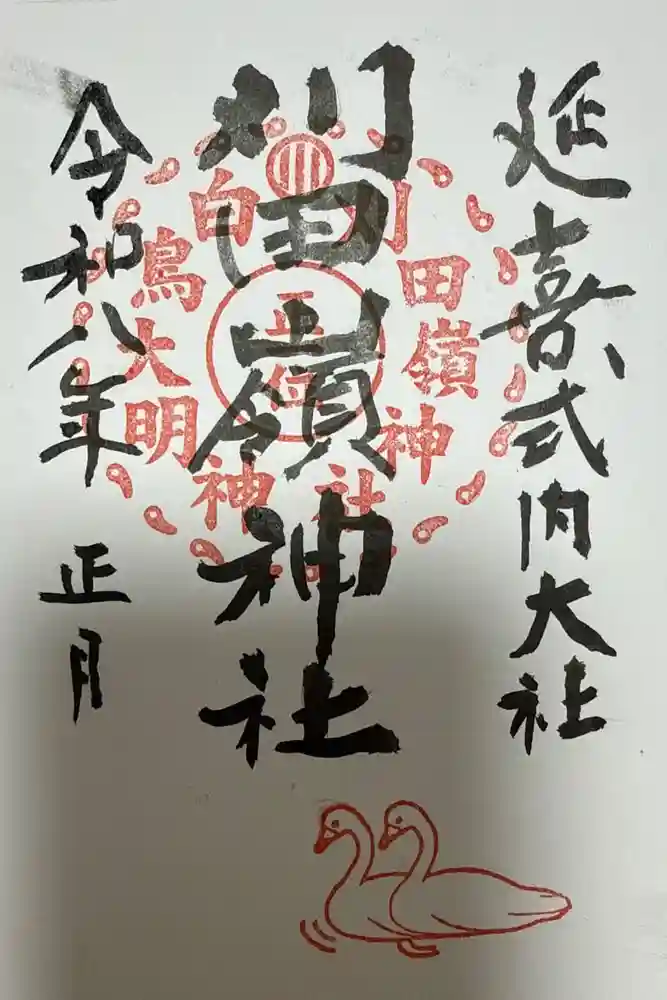 延喜式内大社
刈田嶺神社
令和八年 正月
刈田嶺神社
白鳥大明神